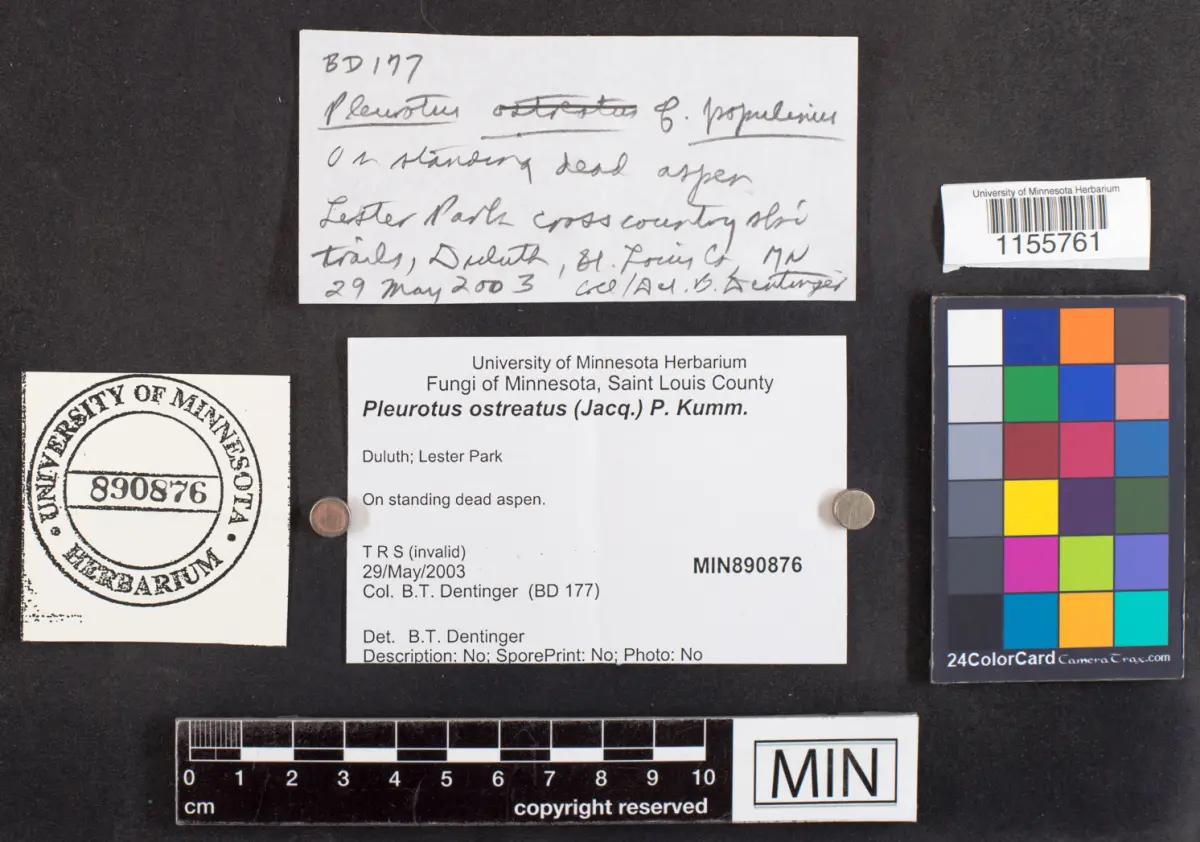 BD 177
Pleurotus ostreatus cf. populinus
On standing dead aspen
Lester Park cross country ski
trails, Duluth, St. Louis Co. MN
29 May 2003 Col/Det. B. Dentinger
University of Minnesota Herbarium
1155761
University of Minnesota Herbarium
Fungi of Minnesota, Saint Louis County
Pleurotus ostreatus (Jacq.) P. Kumm.
Duluth; Lester Park
On standing dead aspen.
T R S (invalid)
29/May/2003
MIN890876
Col. B.T. Dentinger (BD 177)
Det. B.T. Dentinger
Description: No; SporePrint: No; Photo: No
UNIVERSITY OF MINNESOTA
890876
HERBARIUM
24ColorCard CameraTrax.com
0 1 2 3 4 5 6 7 8 9 10
cm copyright reserved
MIN